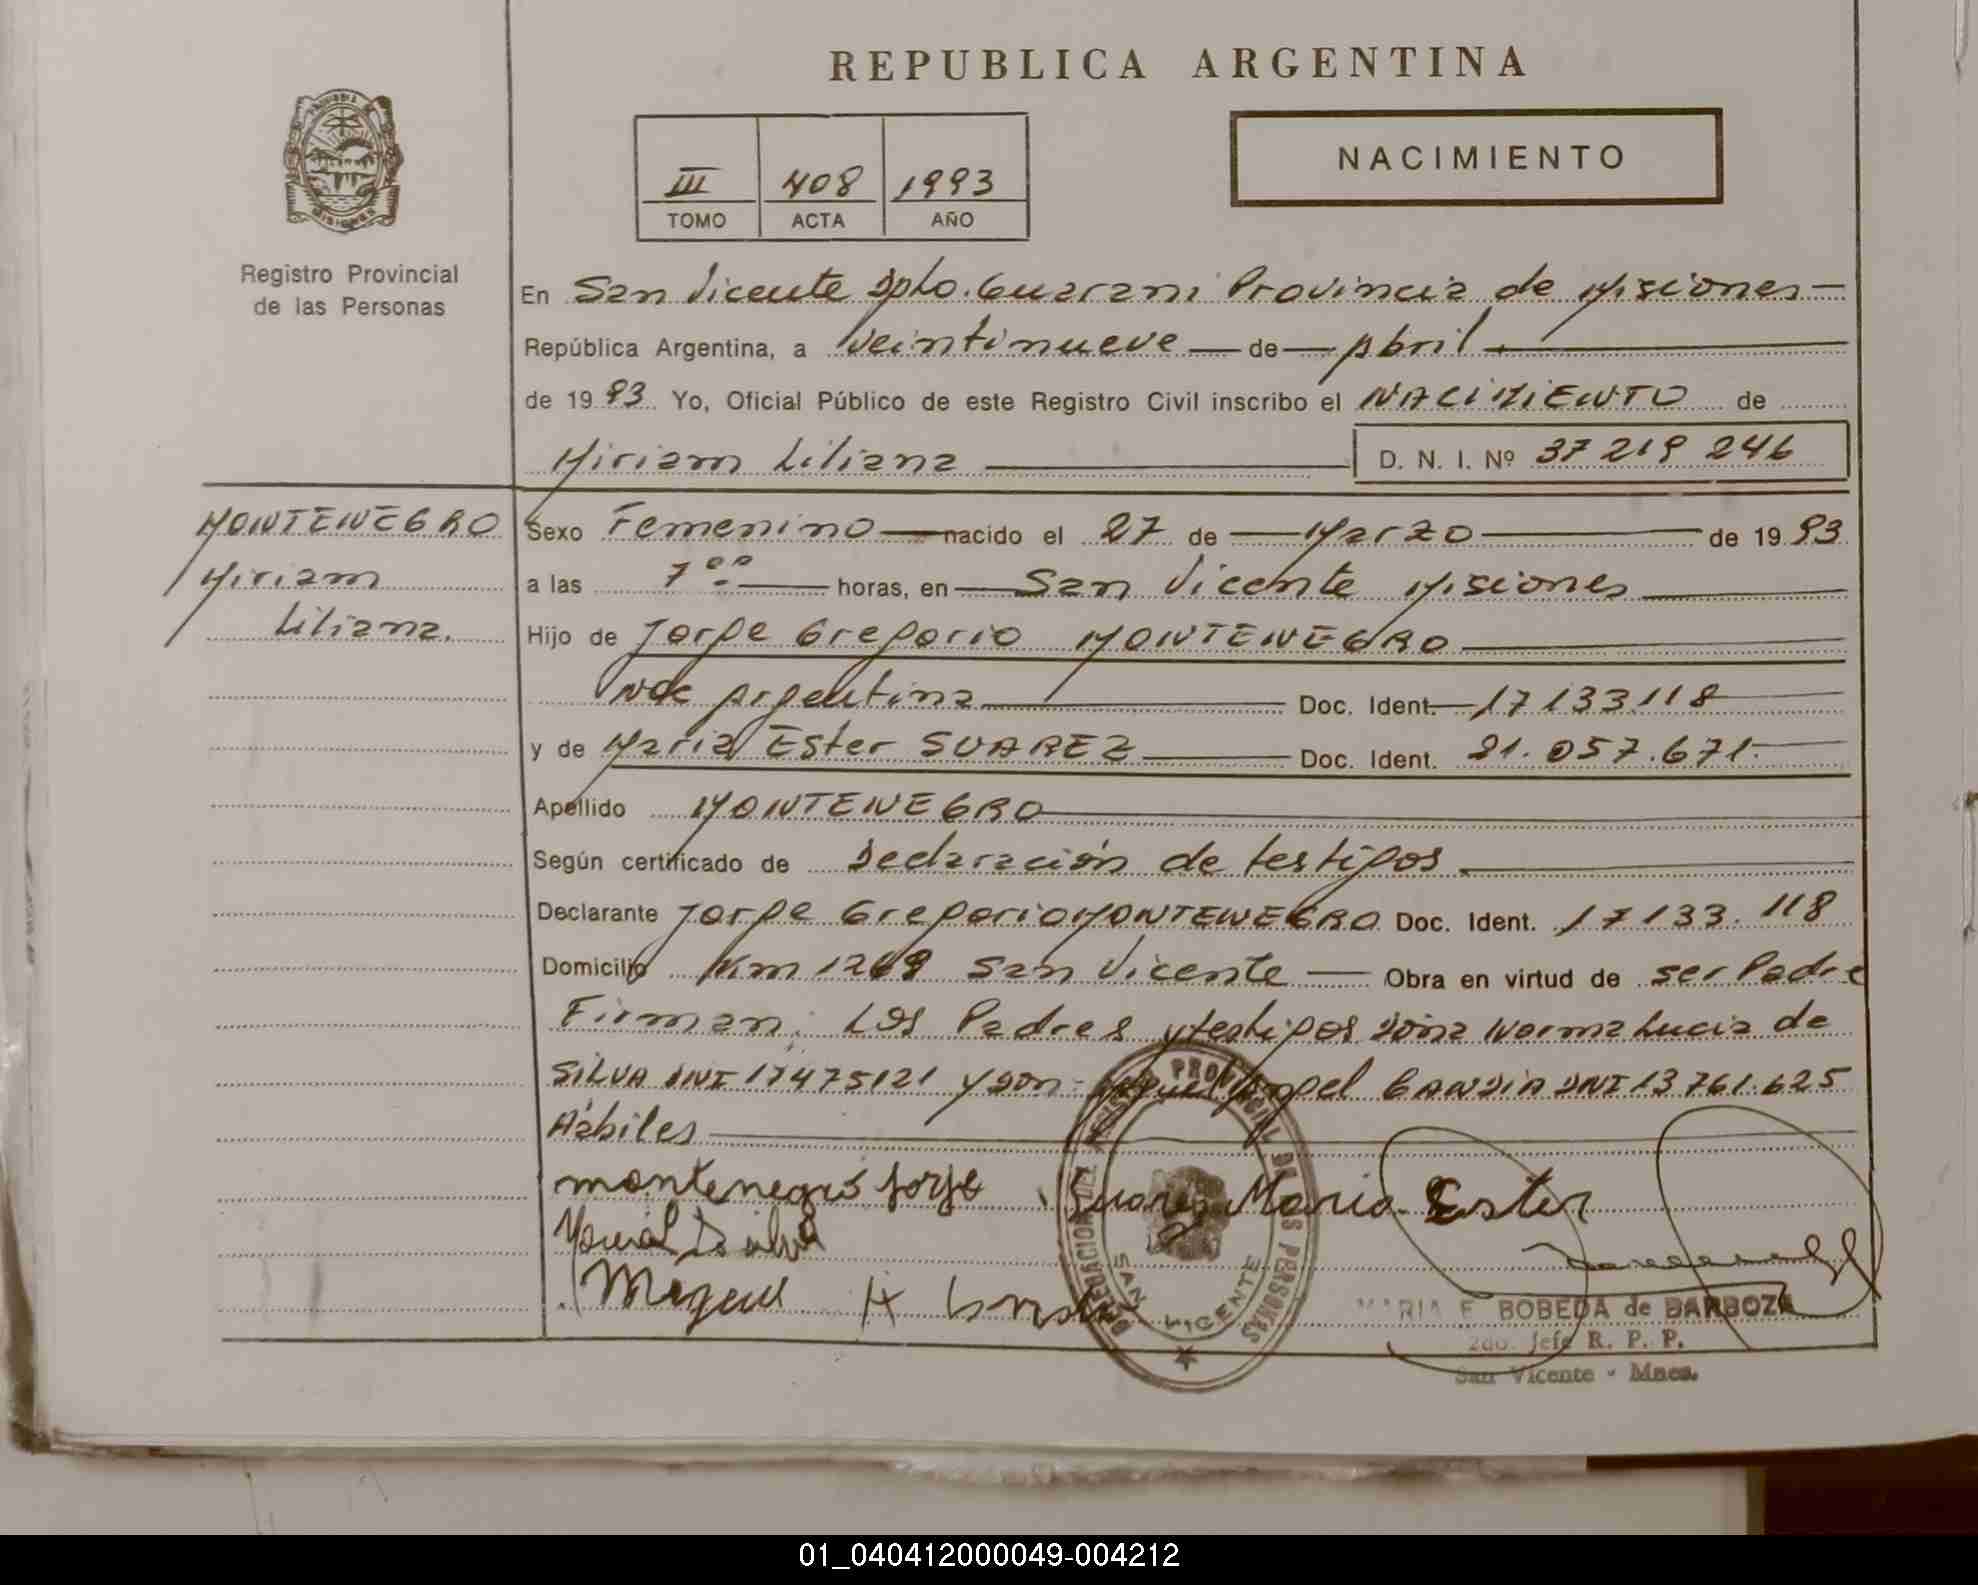 REPUBLICA ARGENTINA
NACIMIENTO
III 408 1993
TOMO ACTA AÑO
Registro Provincial
de las Personas
En San Vicente Dpto. Guarani Provincia de Misiones
República Argentina, a veintinueve de Abril
de 1993. Yo, Oficial Público de este Registro Civil inscribo el NACIMIENTO de
Miriam Liliana D. N. I. Nº 37 219 246
MONTENEGRO
Miriam
Liliana.
Sexo Femenino nacido el 27 de Marzo de 1993
a las 7 00 horas, en San Vicente Misiones
Hijo de Jorge Gregorio MONTENEGRO
Nac Argentina Doc. Ident. 17 133.118
y de Maria Ester SUAREZ Doc. Ident. 21.057.671
Apellido MONTENEGRO
Según certificado de Declaración de testigos
Declarante Jorge Gregorio MONTENEGRO Doc. Ident. 17 133.118
Domicilio Km 1269 San Vicente Obra en virtud de ser Padre
Firman: Los Padres y testigos Doña Norma Lucia de
SILVA DNI 17475121 y don Miguel Angel GANDIA DNI 13 761.625
Hábiles
montenegro Jorge Suarez Maria Ester
Miguel A
DELEGACION DEL REGISTRO PROVINCIAL DE LAS PERSONAS
SAN VICENTE
MARIA E. BOBEDA de BARBOZA
2do. Jefe R. P. P.
San Vicente - Mnes.
01_040412000049-004212